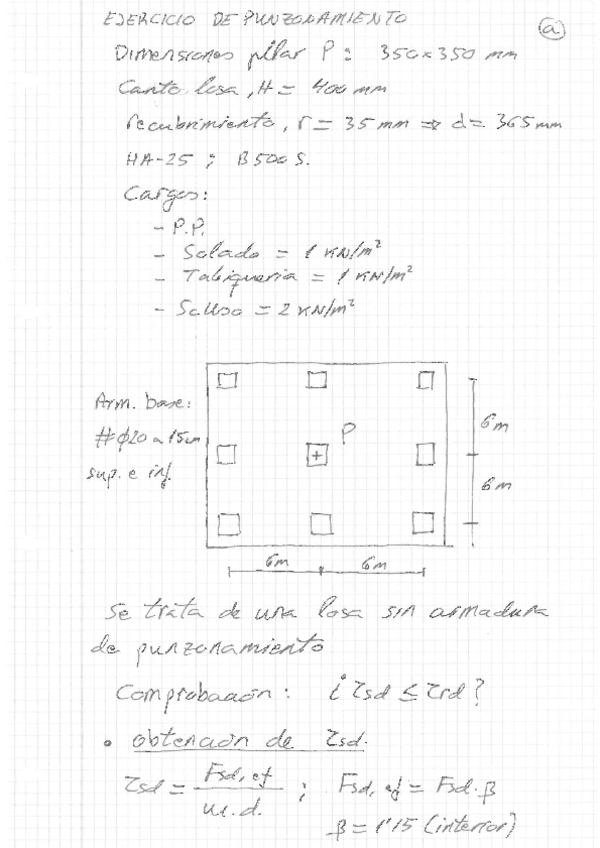 EJERCICIO DE PUNZONAMIENTO
a
Dimensiones pilar P: 350x350 mm
Canto losa, H = 400 mm
recubrimiento, r = 35 mm ⇒ d = 365 mm
HA-25 ; B500 S.
Cargas:
- P.P.
- Solado = 1 KN/m²
- Tabiquería = 1 KN/m²
- SCUso = 2 KN/m²
Arm. base:
# φ20 a 15cm
sup. e inf.
P
6m
6m
6m
6m
Se trata de una losa sin armadura
de punzonamiento
Comprobación: ¿ τsd ≤ τrd ?
• obtención de τsd.
τsd = Fsd,ef / u1.d. ; Fsd,ef = Fsd.β
β = 1'15 (interior)